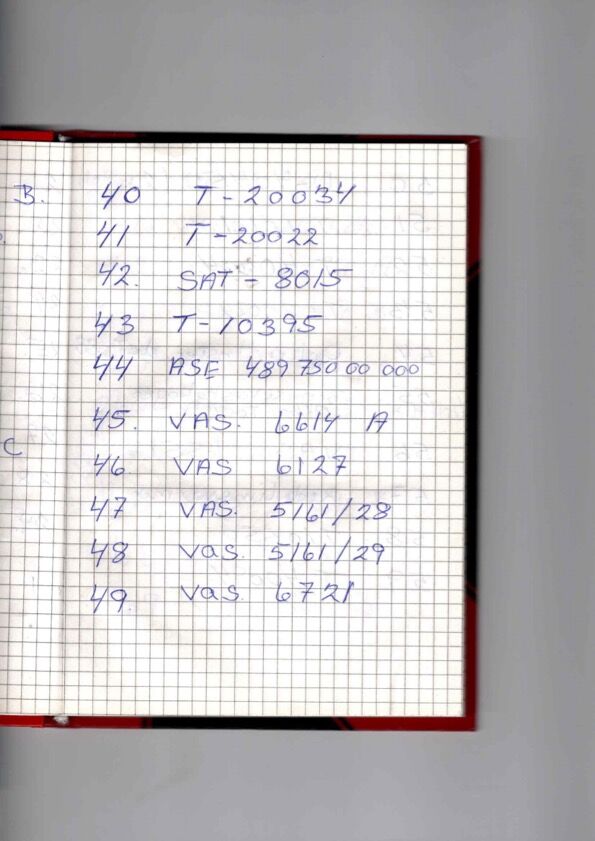 B. 40 T-20034
41 T-20022
42. SAT-8015
43 T-10395
44 ASE 48975000000
45. VAS. 6614 A
C
46 VAS 6127
47 VAS. 5161/28
48 Vas. 5161/29
49. Vas. 6721